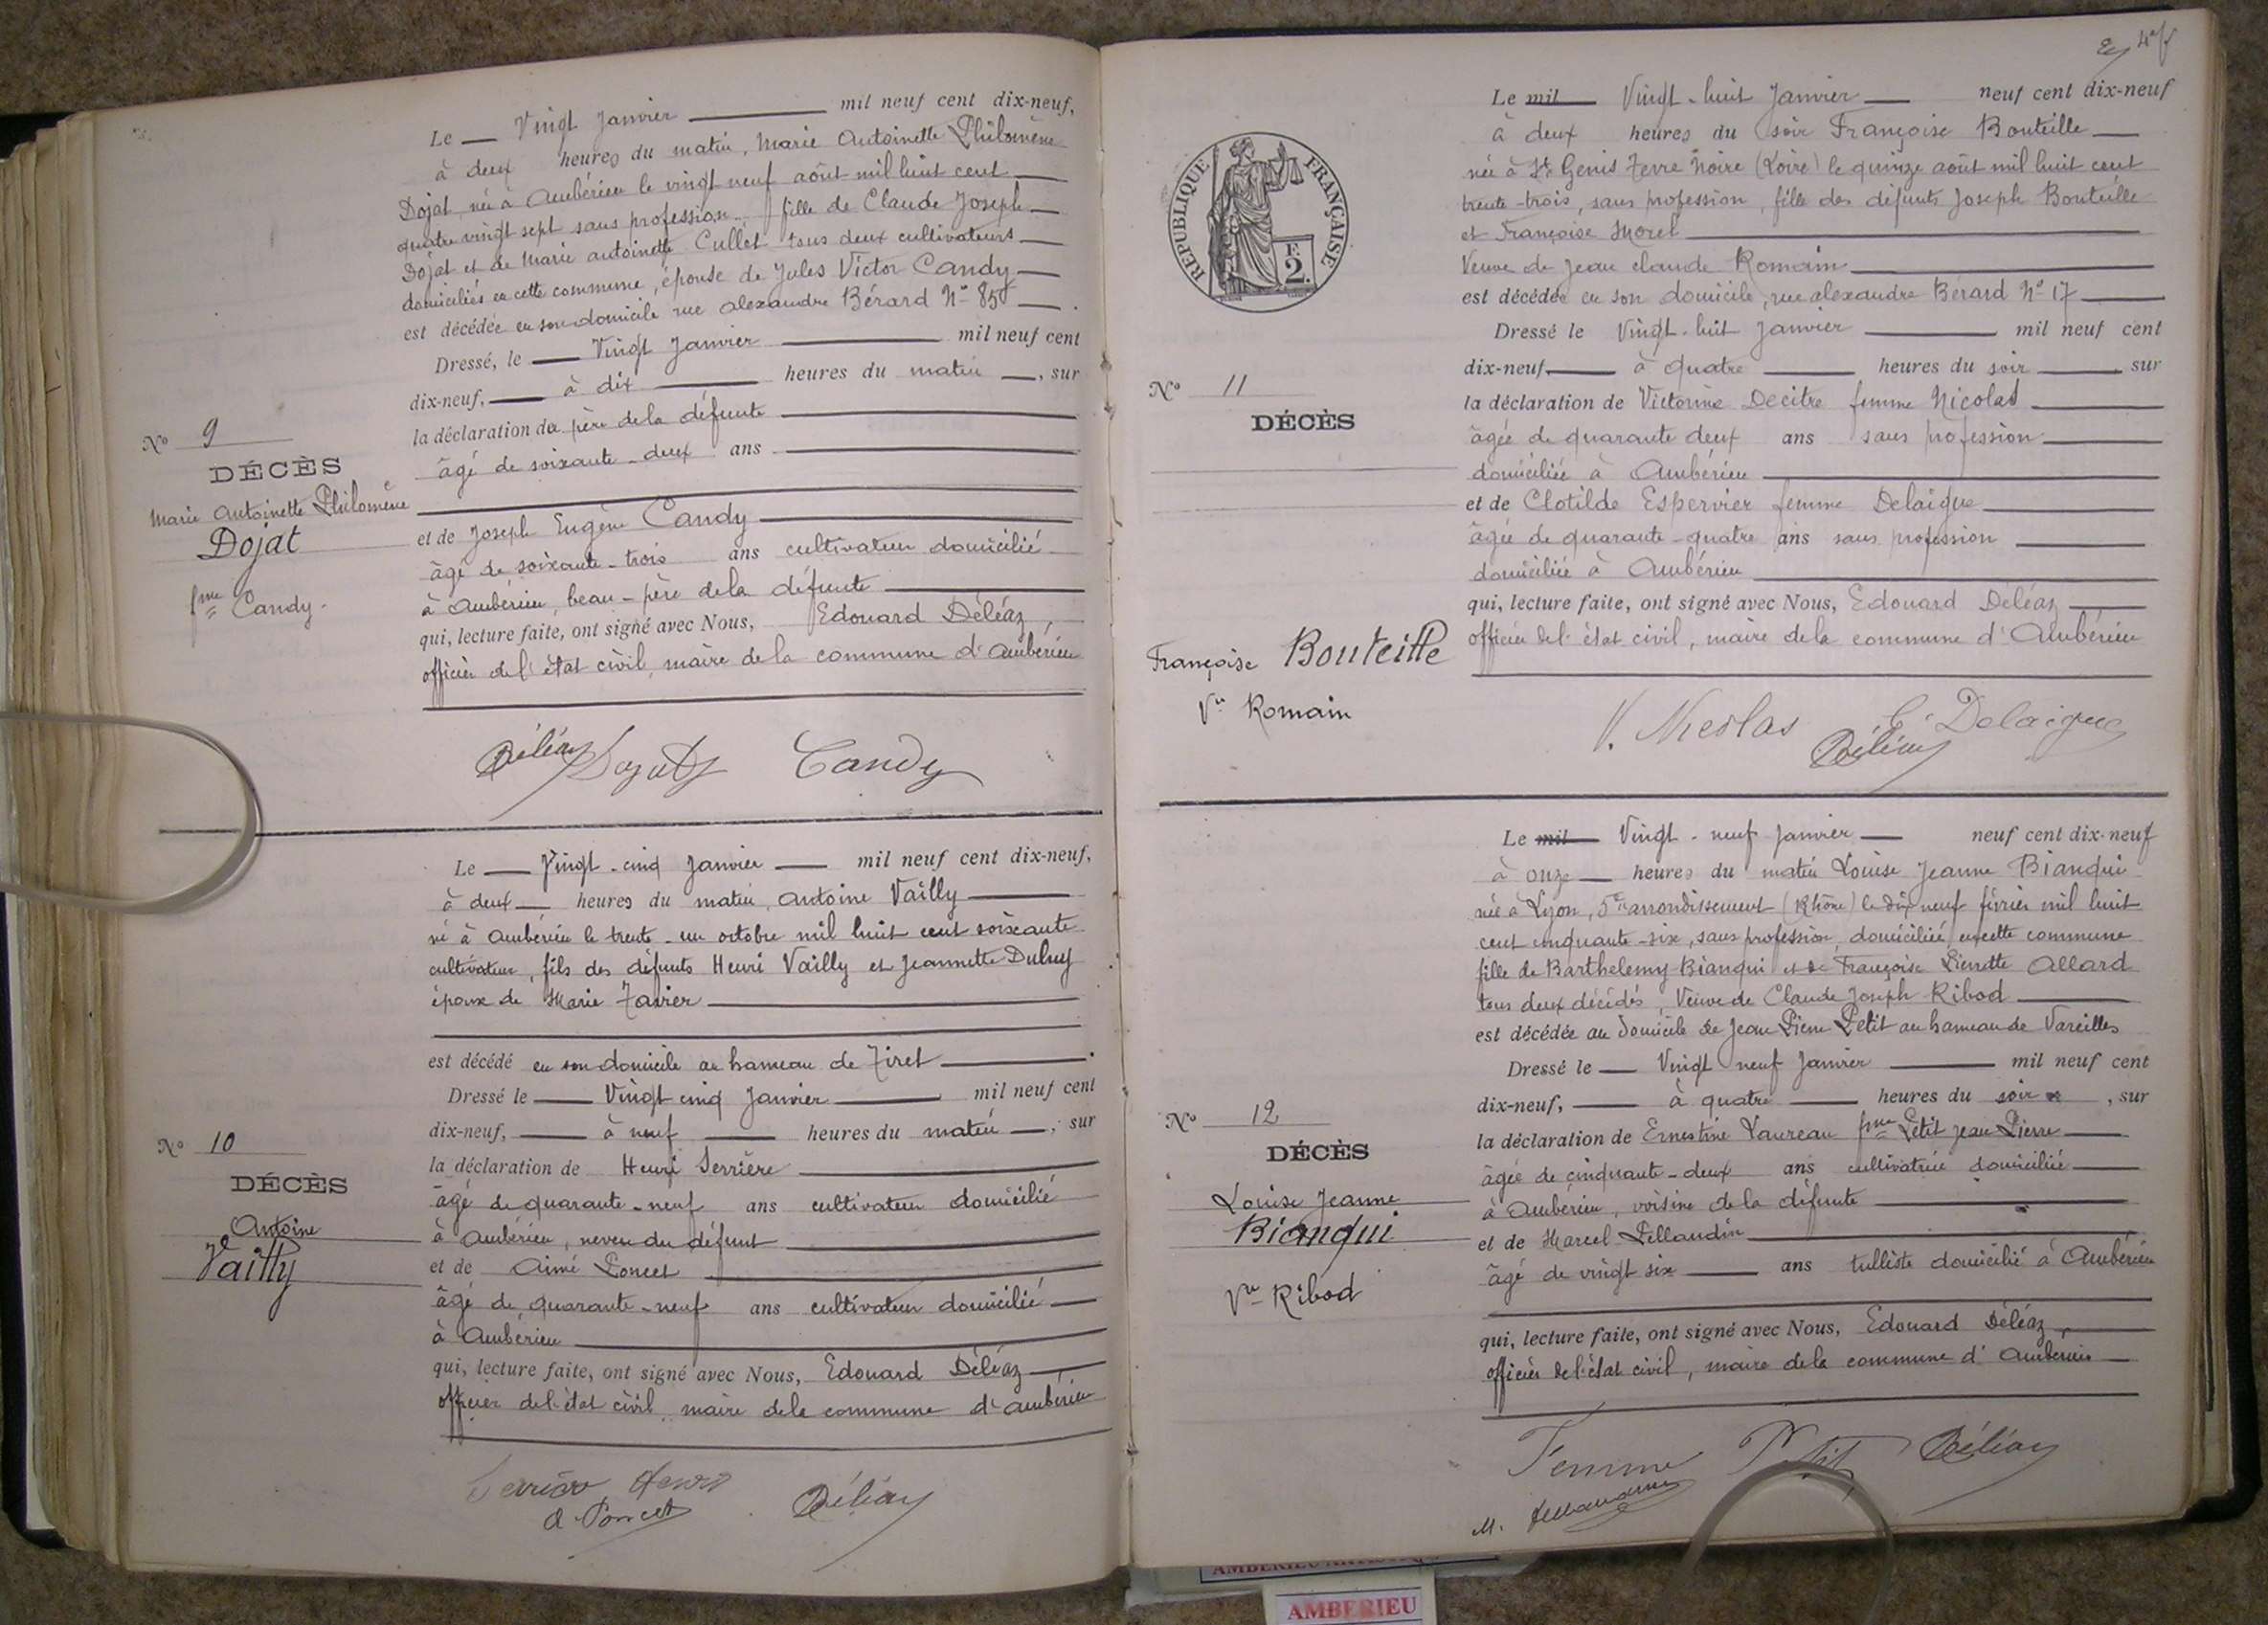 Le Vingt Janvier mil neuf cent dix-neuf,
à deux heures du matin, Marie Antoinette Philomène
Dojat, née à Ambérieu le vingt neuf août mil huit cent
quatre vingt sept sans profession fille de Claude Joseph
Dojat et de Marie antoinette Cullet tous deux cultivateurs
domiciliés en cette commune, épouse de Jules Victor Candy
est décédée en son domicile rue alexandre Bérard N° 85
Dressé, le Vingt Janvier mil neuf cent
dix-neuf, à dix heures du matin, sur
la déclaration du père de la défunte
âgé de soixante-deux ans
N° 9
DÉCÈS
Marie Antoinette Philomène
Dojat
fme Candy.
et de Joseph Eugène Candy
âgé de soixante-trois ans cultivateur domicilié
à Ambérieu, beau-père de la défunte
qui, lecture faite, ont signé avec Nous, Edouard Déléaz,
officier de l'état civil, maire de la commune d'Ambérieu
Déléaz Dojat Candy
Le Vingt-cinq Janvier mil neuf cent dix-neuf,
à deux heures du matin, Antoine Vailly
né à Ambérieu le trente-un octobre mil huit cent soixante
cultivateur, fils des défunts Henri Vailly et Jeannette
époux de Marie
est décédé en son domicile au hameau de Tiret.
Dressé le Vingt cinq Janvier mil neuf cent
dix-neuf, à neuf heures du matin, sur
N° 10
DÉCÈS
Antoine
Vailly
la déclaration de Henri Serrière
âgé de quarante-neuf ans cultivateur domicilié
à Ambérieu, neveu du défunt
et de Aimé Poncet
âgé de quarante-neuf ans cultivateur domicilié
à Ambérieu
qui, lecture faite, ont signé avec Nous, Edouard Déléaz
officier de l'état civil, maire de la commune d'Ambérieu
Serrière Henri
A. Poncet Déléaz
RÉPUBLIQUE FRANÇAISE
F.
2.
Le mil Vingt-huit Janvier neuf cent dix-neuf
à deux heures du soir Françoise Bouteille
née à St Genis Terre Noire (Loire) le quinze août mil huit cent
trente-trois, sans profession, fille des défunts Joseph Bouteille
et Françoise Morel
Veuve de Jean Claude Romain
est décédée en son domicile, rue alexandre Bérard N° 17
Dressé le Vingt-huit Janvier mil neuf cent
dix-neuf à quatre heures du soir, sur
N° 11
DÉCÈS
Françoise Bouteille
Ve Romain
la déclaration de Victorine Decitre femme Nicolas
âgée de quarante deux ans sans profession
domiciliée à Ambérieu
et de Clotilde Espervier femme Delaigue
âgée de quarante-quatre ans sans profession
domiciliée à Ambérieu
qui, lecture faite, ont signé avec Nous, Edouard Déléaz
officier de l'état civil, maire de la commune d'Ambérieu
V. Nicolas C. Delaigue
Déléaz
Le mil Vingt-neuf Janvier neuf cent dix-neuf
à onze heures du matin Louise Jeanne Bianqui
née à Lyon, 5e arrondissement (Rhône) le dix neuf février mil huit
cent cinquante-six, sans profession, domiciliée en cette commune
fille de Barthelemy Bianqui et de Françoise Pierrette Allard
tous deux décédés, Veuve de Claude Joseph Ribod
est décédée au domicile de Jean Pierre Petit au hameau de Vareilles
Dressé le Vingt neuf Janvier mil neuf cent
dix-neuf, à quatre heures du soir, sur
N° 12
DÉCÈS
Louise Jeanne
Bianqui
Ve Ribod
la déclaration de Ernestine fme Petit Jean Pierre
âgée de cinquante-deux ans cultivatrice domiciliée
à Ambérieu, voisine de la défunte
et de Marcel Pellaudin
âgé de vingt six ans tulliste domicilié à Ambérieu
qui, lecture faite, ont signé avec Nous, Edouard Déléaz,
officier de l'état civil, maire de la commune d'Ambérieu
Femme Petit Déléaz
M. Pellaudin
AMBERIEU